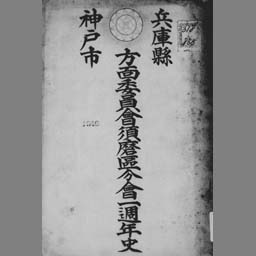 兵庫縣
神戸市
方面委員會須磨區分會一週年史